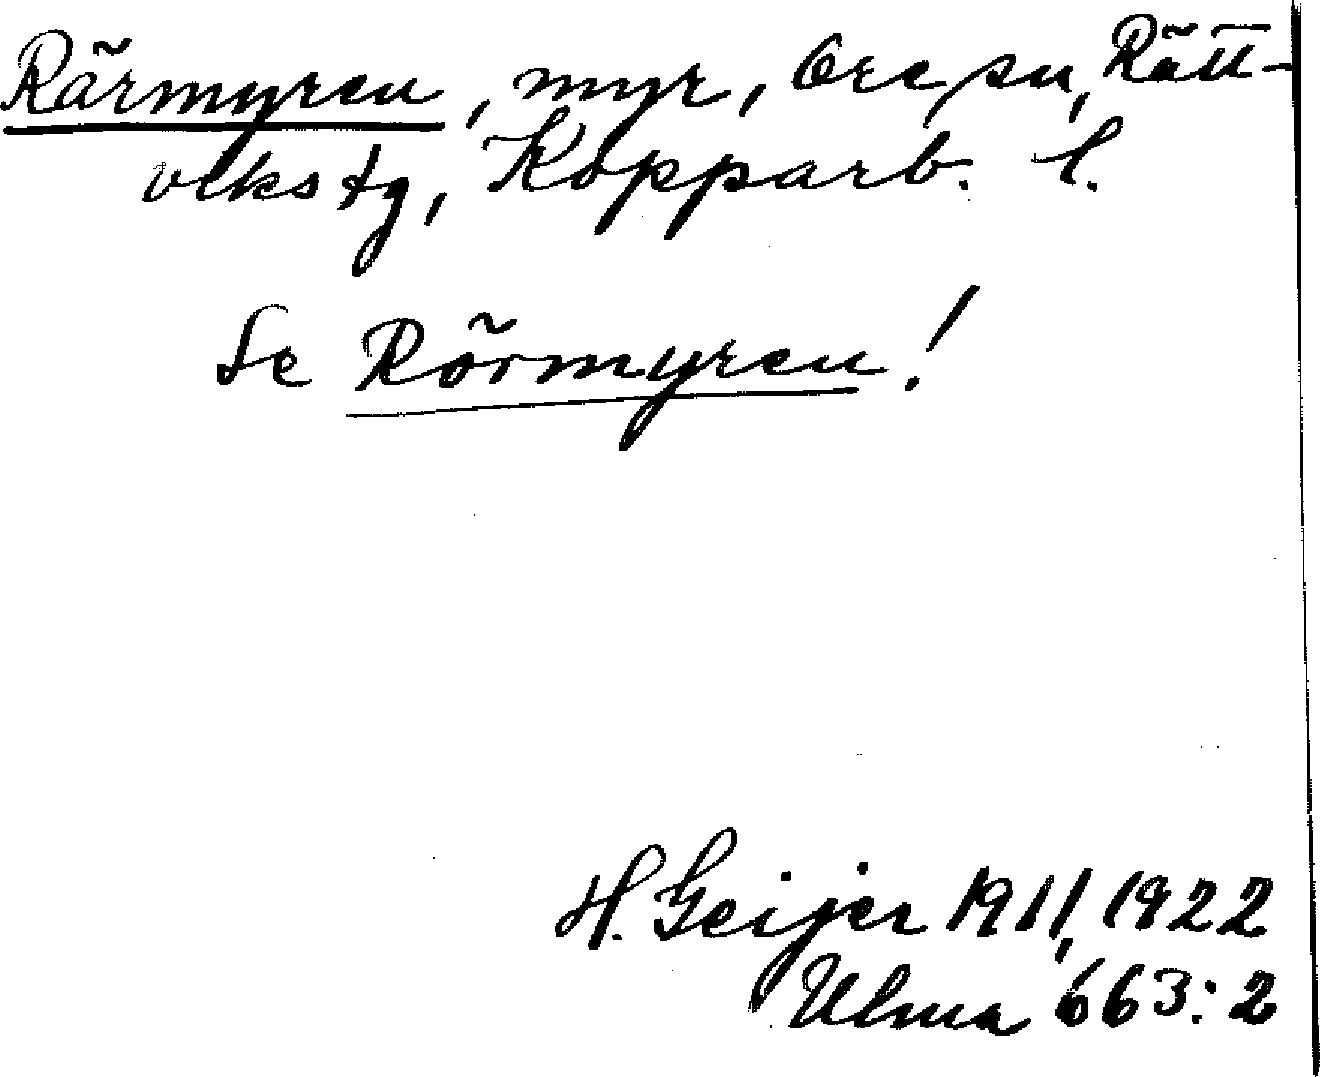 Rärmyren, myr, Ore sn, Rätt-
vlks tg, Kopparb. l.
Se Rörmyren!
H. Geijer 1911, 1922
Ulma 663:2